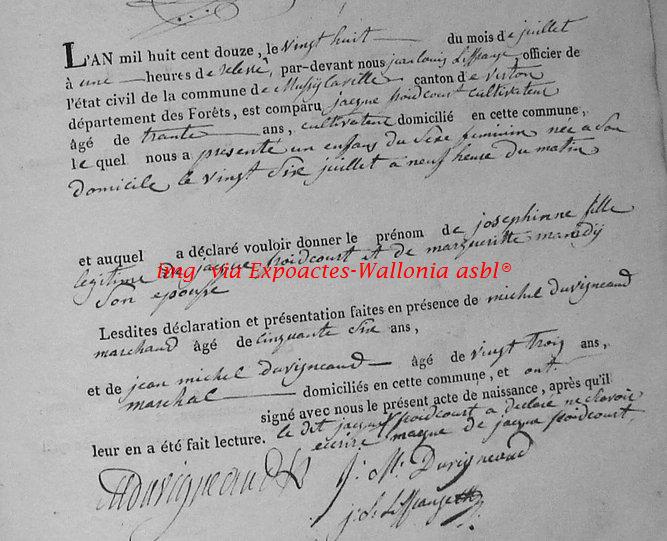 L'AN mil huit cent douze, le vingt huit du mois de juillet
à une heures de relevé, par-devant nous jean louis Leffange officier de
l'état civil de la commune de Mussy la ville canton de virton
département des Forêts, est comparu jacque froidcourt cultivateur
âgé de trante ans, cultivateur domicilié en cette commune,
le quel nous a presenté un enfans du Sexe feminin née a Son
domicile le vingt Six juillet a neuf heure du matin
et auquel a déclaré vouloir donner le prénom de josephinne fille
legitime de jacque froidcourt et de margueritte
Son epouse
img via Expoactes-Wallonia asbl®
Lesdites déclaration et présentation faites en présence de michel duvigneaud
marchand âgé de cinquante Six ans,
et de jean michel duvigneaud âgé de vingt trois ans,
marchal domiciliés en cette commune, et ont
signé avec nous le présent acte de naissance, après qu'il
leur en a été fait lecture. le dit jacque froidcourt a declaré ne Savoir
ecrire marque de jacque froidcourt
Duvigneaud J. M. Duvigneaud